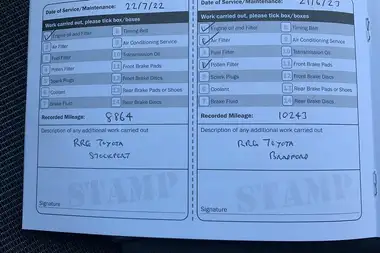 Date of Service/Maintenance: 22/7/22
Work carried out, please tick box/boxes
1 Engine oil and Filter 8 Timing Belt
2 Air Filter 9 Air Conditioning Service
3 Fuel Filter 10 Transmission Oil
4 Pollen Filter 11 Front Brake Pads
5 Spark Plugs 12 Front Brake Discs
6 Coolant 13 Rear Brake Pads or Shoes
7 Brake Fluid 14 Rear Brake Discs
Recorded Mileage: 8864
Description of any additional work carried out
RRG TOYOTA
STOCKPORT
STAMP
Signature
Date of Service/Maintenance: 21/6/23
Work carried out, please tick box/boxes
Engine oil and Filter 8 Timing Belt
Air Filter 9 Air Conditioning Service
3 Fuel Filter 10 Transmission Oil
Pollen Filter 11 Front Brake Pads
5 Spark Plugs 12 Front Brake Discs
6 Coolant 13 Rear Brake Pads or Shoes
7 Brake Fluid 14 Rear Brake Discs
Recorded Mileage: 10243
Description of any additional work carried out
RRG TOYOTA
BRADFORD
STAMP
Signature